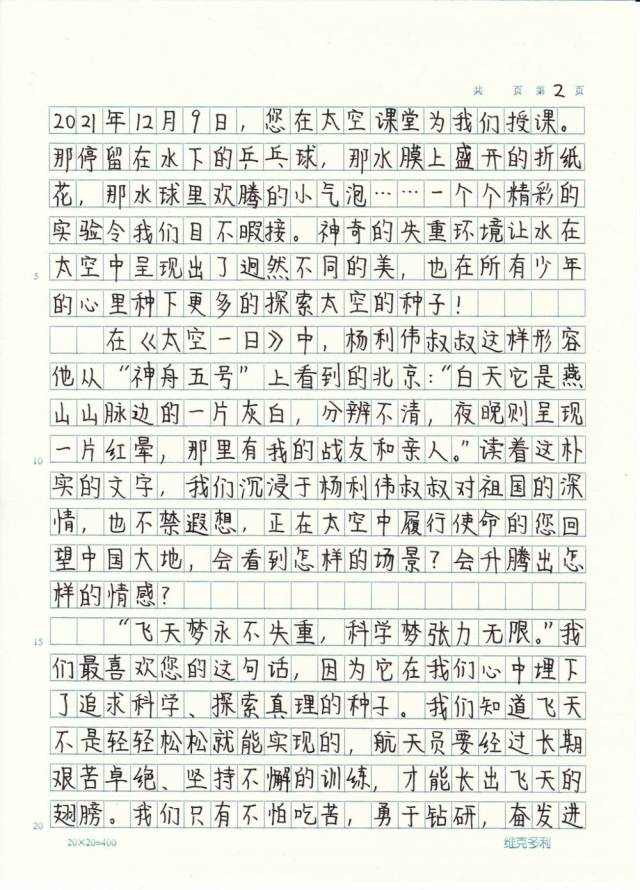 共 页 第 2 页
2021年12月9日，您在太空课堂为我们授课。
那停留在水下的乒乓球，那水膜上盛开的折纸
花，那水球里欢腾的小气泡……一个个精彩的
实验令我们目不暇接。神奇的失重环境让水在
5 太空中呈现出了迥然不同的美，也在所有少年
的心里种下更多的探索太空的种子！
在《太空一日》中，杨利伟叔叔这样形容
他从“神舟五号”上看到的北京：“白天它是燕
山山脉边的一片灰白，分辨不清，夜晚则呈现
10 一片红晕，那里有我的战友和亲人。”读着这朴
实的文字，我们沉浸于杨利伟叔叔对祖国的深
情，也不禁遐想，正在太空中履行使命的您回
望中国大地，会看到怎样的场景？会升腾出怎
样的情感？
15 “飞天梦永不失重，科学梦张力无限。”我
们最喜欢您的这句话，因为它在我们心中埋下
了追求科学、探索真理的种子。我们知道飞天
不是轻轻松松就能实现的，航天员要经过长期
艰苦卓绝、坚持不懈的训练，才能长出飞天的
20 翅膀。我们只有不怕吃苦，勇于钻研，奋发进
20×20=400 维克多利